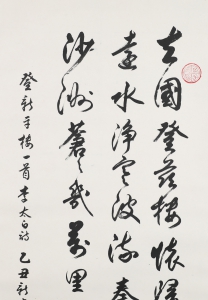 去國登茲樓懷歸
遠水淨寒波流秦
沙洲蒼蒼幾萬里
登新平樓一首李太白詩乙丑新